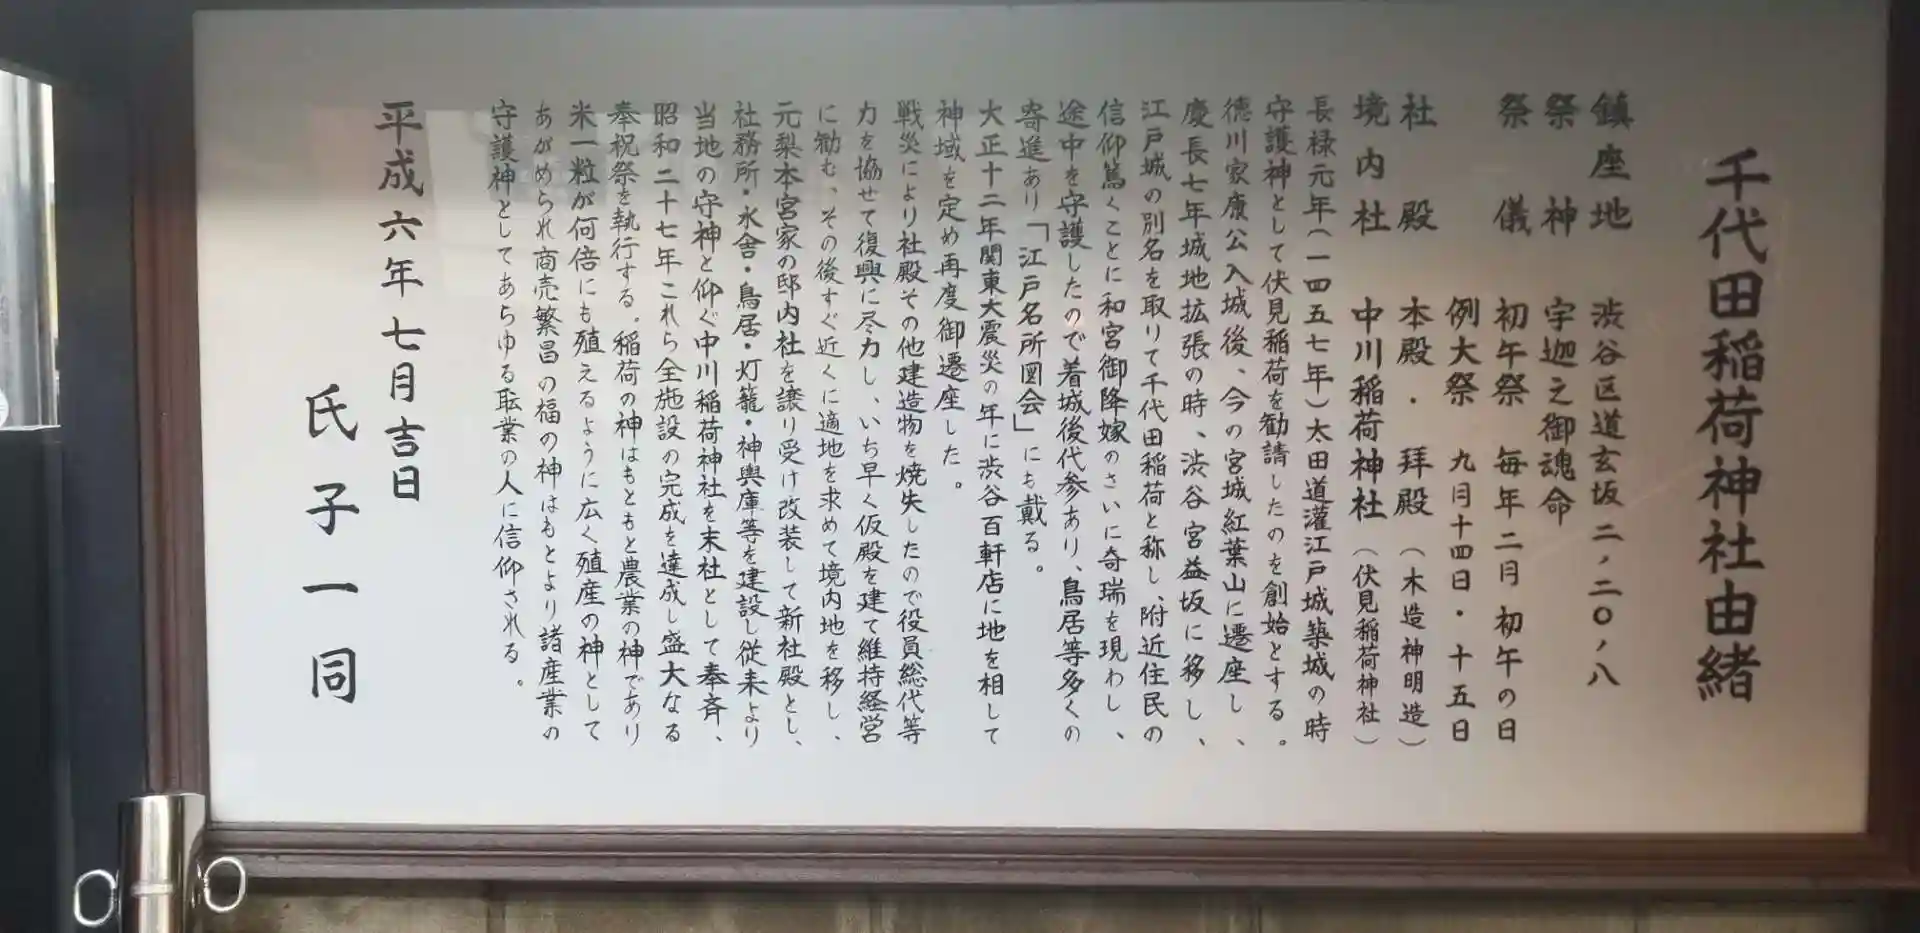 千代田稲荷神社由緒
鎮座地　渋谷区道玄坂二ノ二〇ノ八
祭神　宇迦之御魂命
祭儀　初午祭　毎年二月初午の日
例大祭　九月十四日・十五日
社殿　本殿・拝殿（木造神明造）
境内社　中川稲荷神社（伏見稲荷神社）
長禄元年（一四五七年）太田道灌江戸城築城の時
守護神として伏見稲荷を勧請したのを創始とする。
徳川家康公入城後、今の宮城紅葉山に遷座し、
慶長七年城地拡張の時、渋谷宮益坂に移し、
江戸城の別名を取りて千代田稲荷と称し、附近住民の
信仰篤くことに和宮御降嫁のさいに奇瑞を現わし、
途中を守護したので着城後代参あり、鳥居等多くの
寄進あり「江戸名所図会」にも戴る。
大正十二年関東大震災の年に渋谷百軒店に地を相して
神域を定め再度御遷座した。
戦災により社殿その他建造物を焼失したので役員総代等
力を協せて復興に尽力し、いち早く仮殿を建て維持経営
に勧む、その後すぐ近くに適地を求めて境内地を移し、
元梨本宮家の邸内社を譲り受け改装して新社殿とし、
社務所・水舎・鳥居・灯籠・神輿庫等を建設し従来より
当地の守神と仰ぐ中川稲荷神社を末社として奉斉、
昭和二十七年これら全施設の完成を達成し盛大なる
奉祝祭を執行する。稲荷の神はもともと農業の神であり
米一粒が何倍にも殖えるように広く殖産の神として
あがめられ商売繁昌の福の神はもとより諸産業の
守護神としてあらゆる耺業の人に信仰される。
平成六年七月吉日
氏子一同